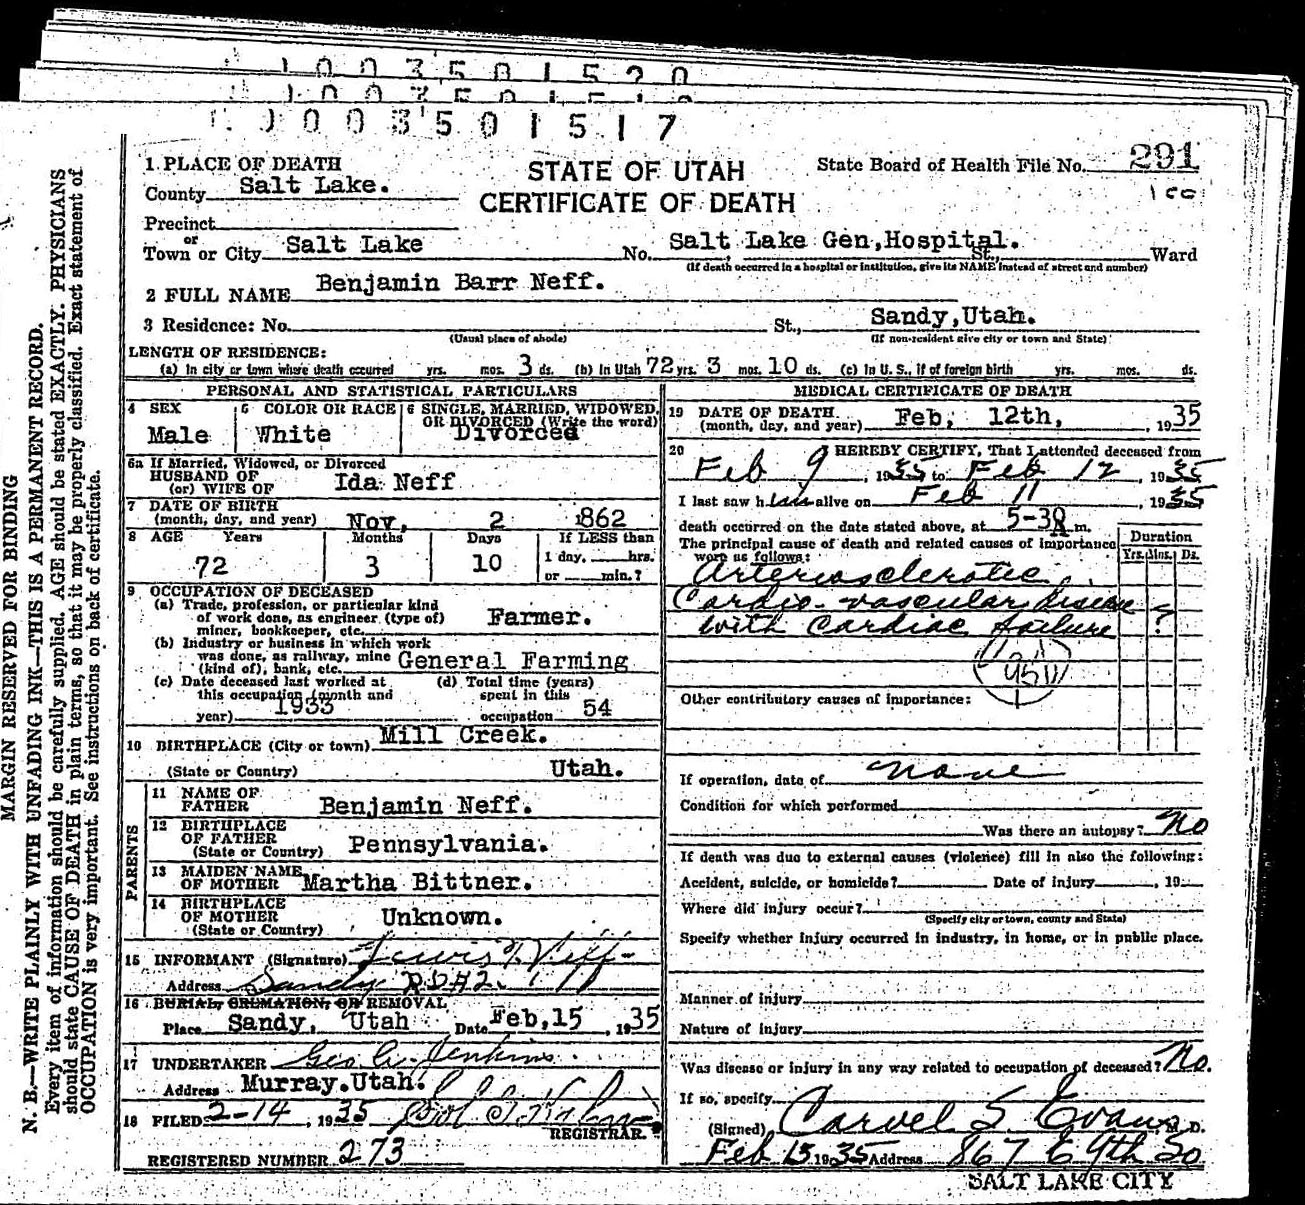 1003501520
1003501517
1 PLACE OF DEATH
County Salt Lake.
Precinct
or
Town or City Salt Lake
STATE OF UTAH
CERTIFICATE OF DEATH
State Board of Health File No. 291
No. Salt Lake Gen,Hospital. St., Ward
(If death occurred in a hospital or institution, give its NAME instead of street and number)
2 FULL NAME Benjamin Barr Neff.
3 Residence: No. St., Sandy,Utah.
(Usual place of abode) (If non-resident give city or town and State)
LENGTH OF RESIDENCE:
(a) In city or town where death occurred yrs. mos. 3 ds. (b) In Utah 72 yrs. 3 mos. 10 ds. (c) In U. S., if of foreign birth yrs. mos. ds.
PERSONAL AND STATISTICAL PARTICULARS
4 SEX
Male
5 COLOR OR RACE
White
6 SINGLE, MARRIED, WIDOWED, OR DIVORCED (Write the word)
Divorced
6a If Married, Widowed, or Divorced
HUSBAND OF
(or) WIFE OF Ida Neff
7 DATE OF BIRTH
(month, day, and year) Nov, 2 1862
8 AGE Years Months Days If LESS than
72 3 10 1 day, hrs.
or min.?
9 OCCUPATION OF DECEASED
(a) Trade, profession, or particular kind
of work done, as engineer (type of)
miner, bookkeeper, etc. Farmer.
(b) Industry or business in which work
was done, as railway, mine
(kind of), bank, etc. General Farming
(c) Date deceased last worked at
this occupation (month and
year) 1933
(d) Total time (years)
spent in this
occupation 54
10 BIRTHPLACE (City or town) Mill Creek.
(State or Country) Utah.
PARENTS
11 NAME OF
FATHER Benjamin Neff.
12 BIRTHPLACE
OF FATHER
(State or Country) Pennsylvania.
13 MAIDEN NAME
OF MOTHER Martha Bittner.
14 BIRTHPLACE
OF MOTHER
(State or Country) Unknown.
15 INFORMANT (Signature) Lewis T. Neff
Address Sandy RD#2.
16 BURIAL, CREMATION, OR REMOVAL
Place Sandy, Utah Date Feb,15, 1935
17 UNDERTAKER Geo A. Jenkins.
Address Murray.Utah.
18 FILED 2-14, 1935
REGISTRAR.
REGISTERED NUMBER 273
MEDICAL CERTIFICATE OF DEATH
19 DATE OF DEATH
(month, day, and year) Feb, 12th, , 1935
20 I HEREBY CERTIFY, That I attended deceased from
Feb 9, 1935 to Feb 12, 1935
I last saw him alive on Feb 11, 1935
death occurred on the date stated above, at 5-30 A m.
The principal cause of death and related causes of importance
were as follows:
Duration
Yrs. Mos. Ds.
Arteriosclerotic
Cardio-vascular disease
with cardiac failure ?
95B
Other contributory causes of importance:
If operation, date of none
Condition for which performed
Was there an autopsy? No
If death was due to external causes (violence) fill in also the following:
Accident, suicide, or homicide? Date of injury , 19
Where did injury occur?
(Specify city or town, county and State)
Specify whether injury occurred in industry, in home, or in public place.
Manner of injury
Nature of injury
Was disease or injury in any way related to occupation of deceased? No.
If so, specify
(Signed) Carvel S. Evans, M. D.
Feb 13 1935 Address 867 E 9th So
SALT LAKE CITY
MARGIN RESERVED FOR BINDING
N. B.—WRITE PLAINLY WITH UNFADING INK—THIS IS A PERMANENT RECORD.
Every item of information should be carefully supplied. AGE should be stated EXACTLY. PHYSICIANS
should state CAUSE OF DEATH in plain terms, so that it may be properly classified. Exact statement of
OCCUPATION is very important. See instructions on back of certificate.